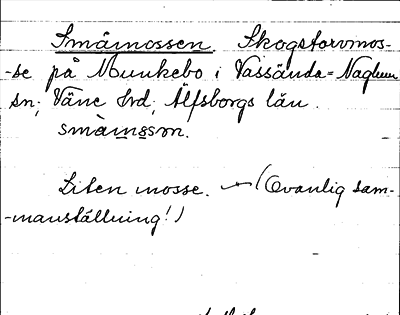 Småmossen. Skogstorvmos-
-se på Munkebo i Vassända-Naglum
sn; Väne hrd; Älfsborgs län.
småmsn.
Liten mosse. — (Ovanlig sam-
-manställning!)